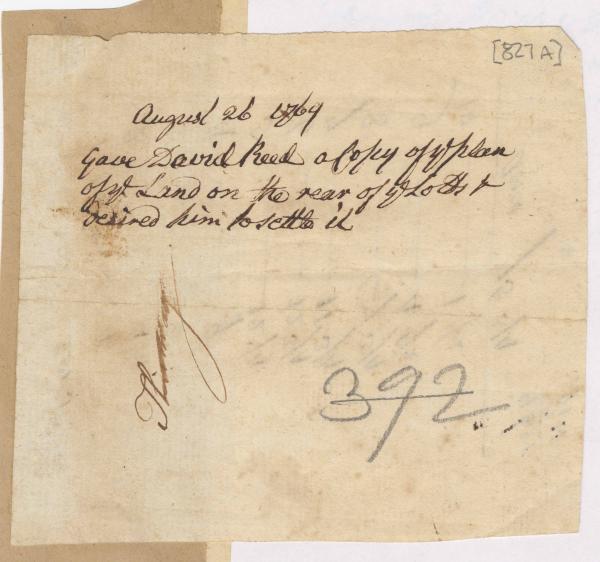 [827A]
August 26 1769
Gave David Reed a Copy of ye plan
of ye Land on the rear of ye Lotts &
desired him to settle it
392